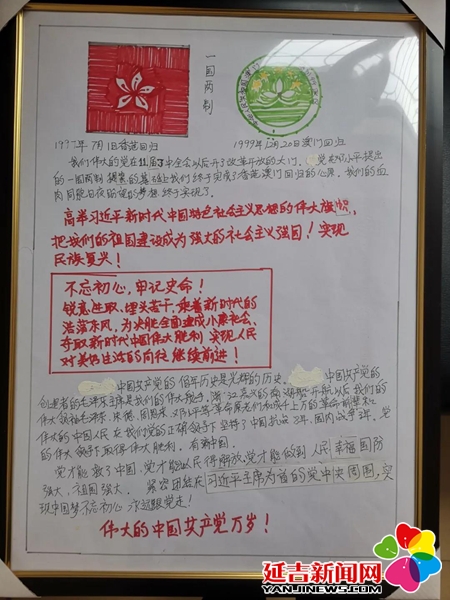 一国两制
1997年7月1日香港回归
1999年12月20日澳门回归
我们伟大的党在十一届三中全会以后开了改革开放的大门。
的一国两制
我们终于完成了香港澳门回归的心原。我们的血
肉同胞日夜盼望的梦想终于实现了。
高举习近平新时代中国特色社会主义思想的伟大旗帜,
把我们的祖国建设成为强大的社会主义强国!实现
民族复兴!
不忘初心,牢记史命!
锐意进取、埋头苦干,乘着新时代的
浩荡东风,为决胜全面建成小康社会、
夺取新时代中国伟大胜利 实现人民
对美好生活的向往继续前进!
中国共产党的佰年历史是光辉的历史。
中国共产党的
创造者的毛泽东主席是我们的伟大舵手。
伟大领袖毛泽东、朱德、周恩来、
伟大的中国人民在我们党的正确领导下坚持了
的伟大领导下取得伟大胜利。有新中国。
党才能救了中国,党才能以人民得解放,党才能做到人民幸福国防
强大,祖国强大。紧密团结在习近平主席为首的党中央周围,实
现中国梦不忘初心 永远跟党走!
伟大的中国共产党万岁!
延吉新闻网
WWW.YANJINEWS.COM